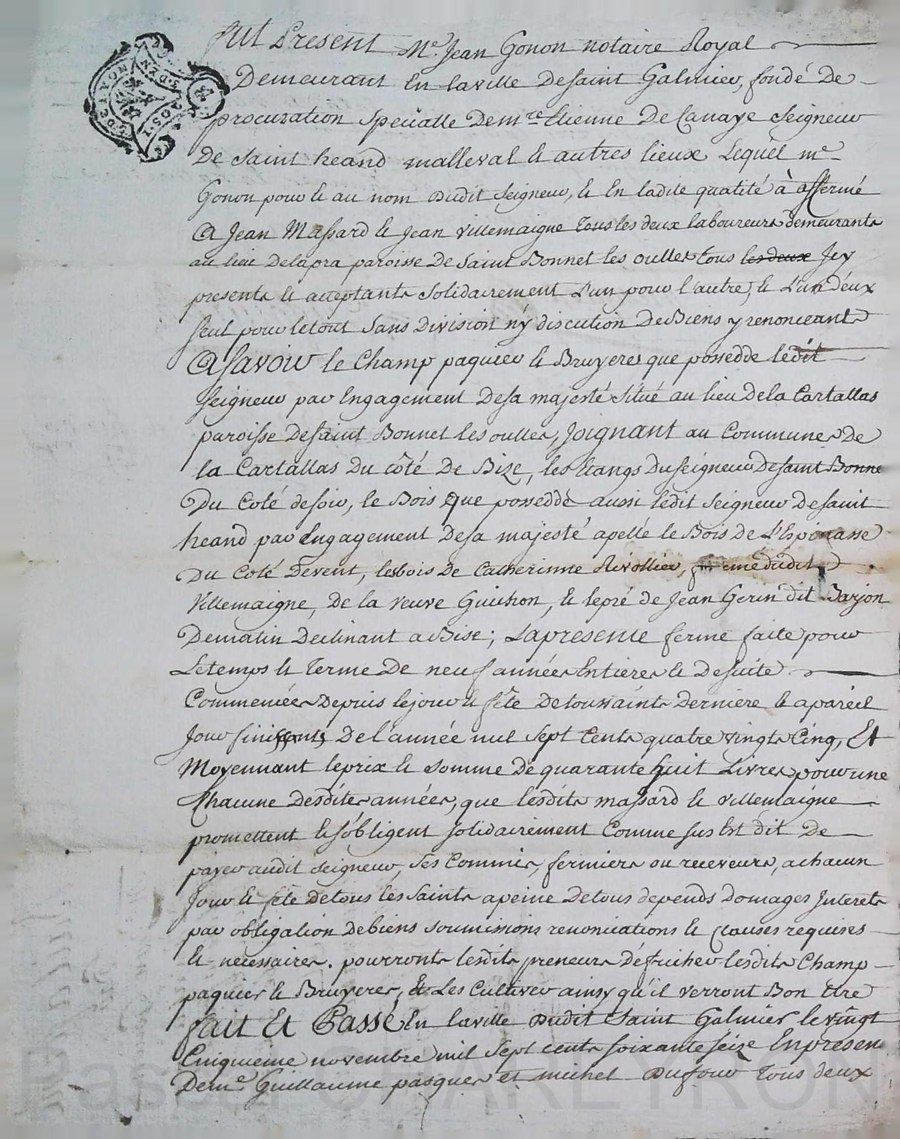 fut Present Me. Jean Gonon notaire Royal
Demeurant En la ville De Saint Galmier, fondé de
procuration Specialle De mre. Etienne De Canaye Seigneur
De Saint heand malleval et autres lieux Lequel me
Gonon pour et au nom Dudit Seigneur, et En ladite qualité à affermé
A Jean Massard et Jean villemaigne tous les deux laboureurs demeurants
au lieu De la pra paroisse De Saint Bonnet les oulles tous les deux Jcy
presents et acceptants solidairement L'un pour l'autre, et L'un d'eux
seul pour le tout Sans Division n'y discution De Biens y renonceants
A Savoir le Champ paquier et Bruyeres que possedde ledit
Seigneur par Engagement De sa majesté situé au lieu De la Cartallas
paroisse De Saint Bonnet les oulles, Joignant au Commune De
la Cartallas Du côté De Bize, les Etangs Du Seigneur De Saint Bonne
Du Coté de soir, le Bois que possedde aussi ledit Seigneur De Saint
heand par Engagement De sa majesté apellé le Bois de L'Espinasse
Du Coté De vent, les bois de Catherinne Rivollier, femme dudit
villemaigne, De la veuve Guichon, et le pré de Jean Gerin dit Barjon
De matin Declinant a Bise; La presente ferme faite pour
Le temps et terme De neuf années Entieres et De suite
Commencées Depuis le jour et fête De toussaints Derniere et a pareil
Jour finissants De l'année mil Sept Cents quatre vingts Cinq, Et
Moyennant le prix et somme De quarante huit Livres pour une
Chacune Desdites années, que lesdits massard et villemaigne
promettent et s'obligent solidairement Comme sus Est dit De
payer audit Seigneur, Ses Commis, fermiers ou receveurs, a chacun
Jour et fête De tous les Saints a peine De tous depends Domages Interets
par obligation De biens soumissions renonciations et clauses requises
Et necessaires. pourronts lesdits preneurs Défricher lesdits Champ
paquier et Bruyeres, Et Les Cultiver ainsy qu'il verront Bon Etre
fait Et Passé En la ville Dudit Saint Galmier le vingt
Cinquieme novembre mil Sept cents soixante seize En presen
De me. Guillaume pasquer et michel Dufour tous deux